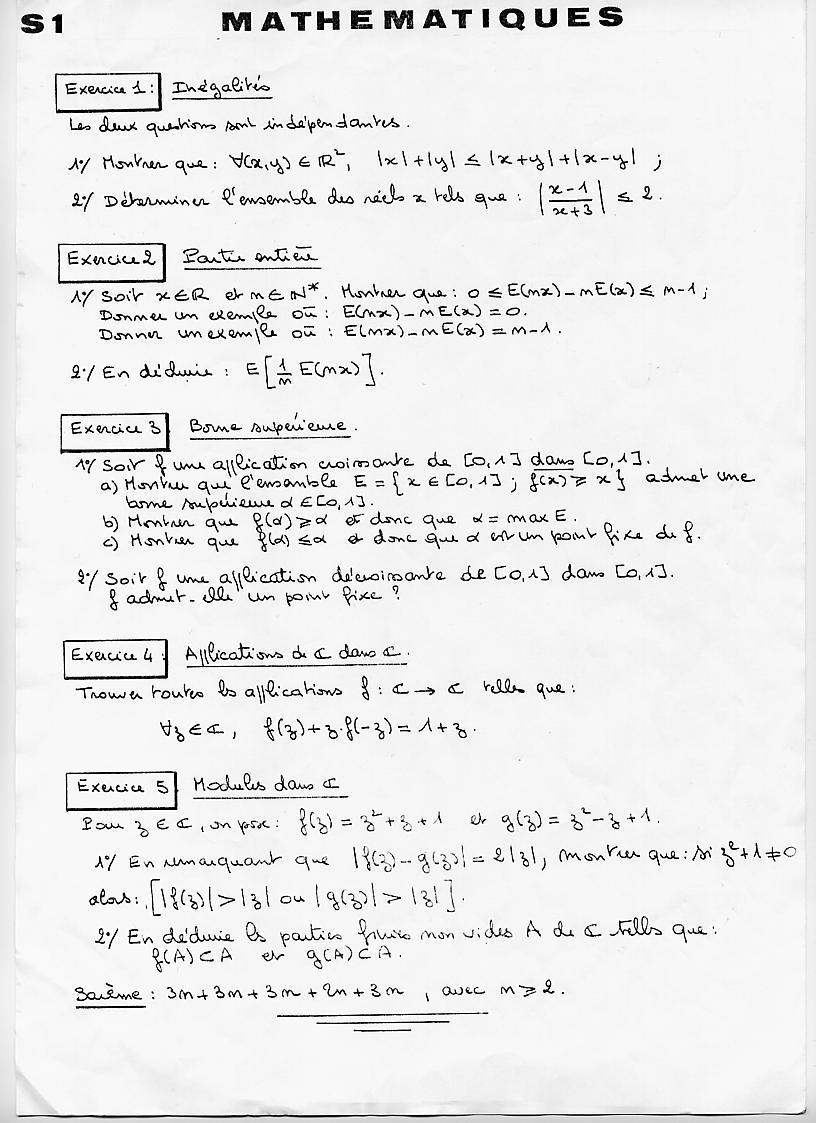 S1 MATHEMATIQUES
Exercice 1 : Inégalités
Les deux questions sont indépendantes.
1°/ Montrer que : ∀(x,y) ∈ ℝ², |x|+|y| ≤ |x+y|+|x-y| ;
2°/ Déterminer l'ensemble des réels x tels que : |(x-1)/(x+3)| ≤ 2.
Exercice 2 Partie entière
1°/ Soit x∈ℝ et n∈ℕ*. Montrer que : 0 ≤ E(nx)-nE(x) ≤ n-1 ;
Donner un exemple où : E(nx)-nE(x)=0.
Donner un exemple où : E(nx)-nE(x)=n-1.
2°/ En déduire : E[1/n E(nx)].
Exercice 3 Borne supérieure.
1°/ Soit f une application croissante de [0,1] dans [0,1].
a) Montrer que l'ensemble E = {x ∈ [0,1] ; f(x) ≥ x} admet une
borne supérieure α ∈ [0,1].
b) Montrer que f(α) ≥ α et donc que α = max E.
c) Montrer que f(α) ≤ α et donc que α est un point fixe de f.
2°/ Soit f une application décroissante de [0,1] dans [0,1].
f admet-elle un point fixe ?
Exercice 4 : Applications de ℂ dans ℂ.
Trouver toutes les applications f : ℂ → ℂ telles que :
∀z ∈ ℂ, f(z)+z.f(-z) = 1+z.
Exercice 5 Modules dans ℂ
Pour z ∈ ℂ, on pose : f(z) = z²+z+1 et g(z) = z²-z+1.
1°/ En remarquant que |f(z)-g(z)| = 2|z|, montrer que : si z²+1≠0
alors : [|f(z)|>|z| ou |g(z)|>|z|].
2°/ En déduire les parties finies non vides A de ℂ telles que :
f(A)⊂A et g(A)⊂A.
Barème : 3n+3n+3n+2n+3n , avec n ≥ 2.